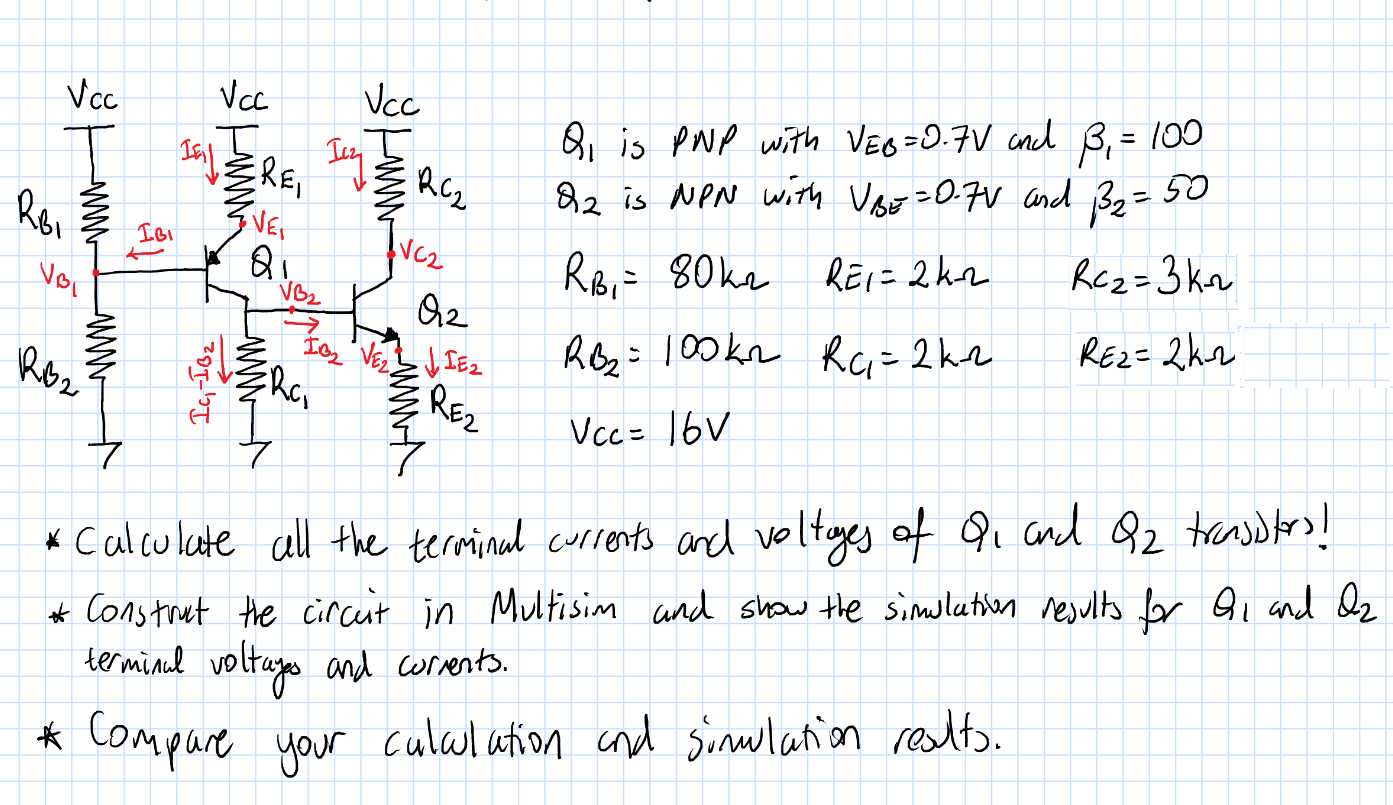 Vcc Vcc Vcc
IE1 RE1 IC2 RC2
RB1 IB1 VE1
VB1 Q1 VC2
VB2 Q2
RB2 IC1-IB2 RC1 IB2 VE2 IE2 RE2
Q1 is PNP with VEB=0.7V and β1=100
Q2 is NPN with VBE=0.7V and β2=50
RB1= 80kΩ RE1=2kΩ RC2=3kΩ
RB2= 100kΩ RC1=2kΩ RE2=2kΩ
Vcc= 16V
* Calculate all the terminal currents and voltages of Q1 and Q2 transistors!
* Construct the circuit in Multisim and show the simulation results for Q1 and Q2
terminal voltages and currents.
* Compare your calculation and simulation results.